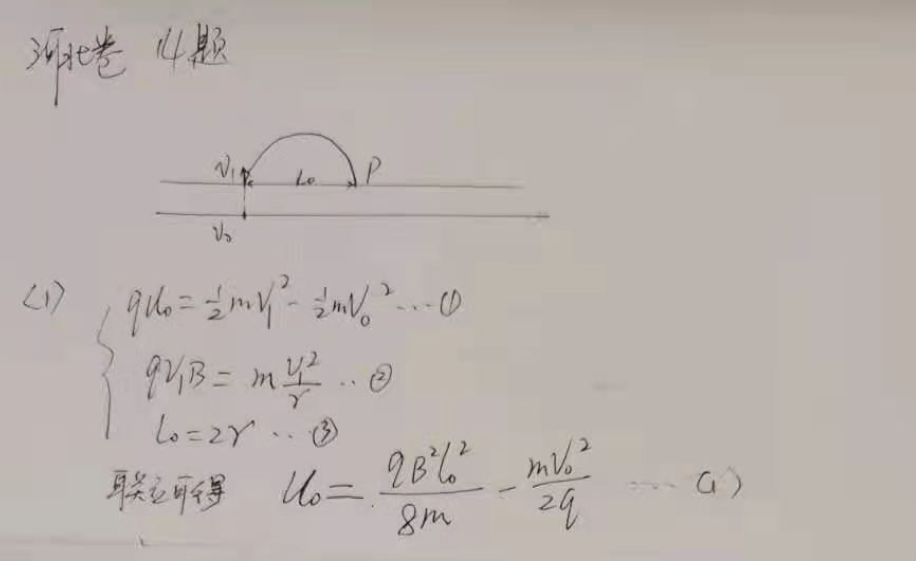 河北卷 14题
V₁ L₀ P
V₀
<1> qU₀=½mV₁²-½mV₀² ...①
qV₁B=mV₁²/r ..②
L₀=2r ..③
联立可得 U₀=qB²L₀²/8m-mV₀²/2q ....(1)